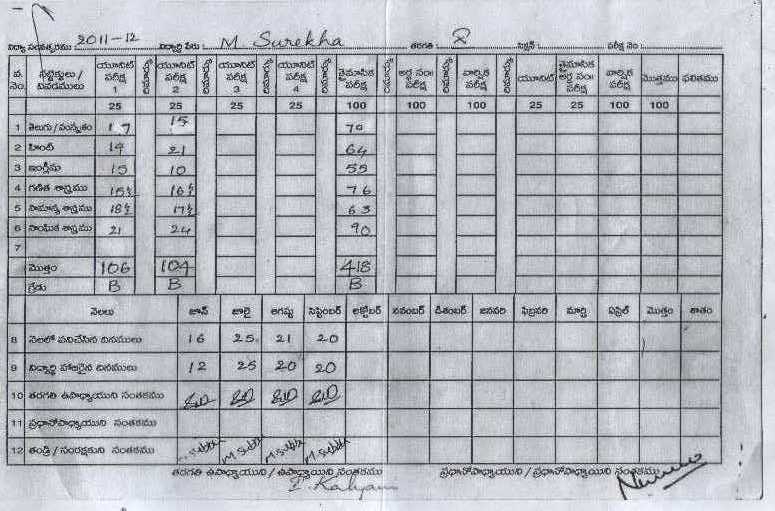 విద్యా సంవత్సరము 2011-12 విద్యార్థి పేరు : M Surekha తరగతి : 8 సెక్షన్ : పరీక్ష నెం :
వ. నెం. సబ్జెక్టులు / వివరములు యూనిట్ పరీక్ష 1 యూనిట్ పరీక్ష 2 యూనిట్ పరీక్ష 3 యూనిట్ పరీక్ష 4 త్రైమాసిక పరీక్ష అర్ధ సం॥ పరీక్ష వార్షిక పరీక్ష యూనిట్ త్రైమాసిక అర్ధ సం॥ పరీక్ష వార్షిక పరీక్ష మొత్తము ఫలితము
25 25 25 25 100 100 100 25 25 100 100
1 తెలుగు / సంస్కృతం 17 15 70
2 హిందీ 14 21 64
3 ఇంగ్లీషు 15 10 55
4 గణిత శాస్త్రము 15½ 16½ 76
5 సామాన్య శాస్త్రము 18½ 17½ 63
6 సాంఘిక శాస్త్రము 21 24 90
7
మొత్తం 106 104 418
గ్రేడు B B B
నెలలు జూన్ జూలై ఆగష్టు సెప్టెంబర్ అక్టోబర్ నవంబర్ డిశంబర్ జనవరి ఫిబ్రవరి మార్చి ఏప్రిల్ మొత్తం శాతం
8 నెలలో పనిచేసిన దినములు 16 25 21 20
9 విద్యార్థి హాజరైన దినములు 12 25 20 20
10 తరగతి ఉపాధ్యాయుని సంతకము
11 ప్రధానోపాధ్యాయుని సంతకము
12 తండ్రి / సంరక్షకుని సంతకము M Subba M Subba M Subba
తరగతి ఉపాధ్యాయుని / ఉపాధ్యాయిని సంతకము ప్రధానోపాధ్యాయుని / ప్రధానోపాధ్యాయిని సంతకము
I. Kalyani